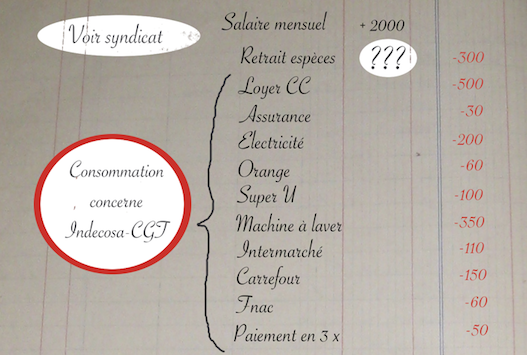 Voir syndicat
Salaire mensuel + 2000
Retrait espèces ??? -300
Loyer CC -500
Assurance -30
Electricité -200
Orange -60
Super U -100
Machine à laver -350
Intermarché -110
Carrefour -150
Fnac -60
Paiement en 3 x -50
Consommation
concerne
Indecosa-CGT